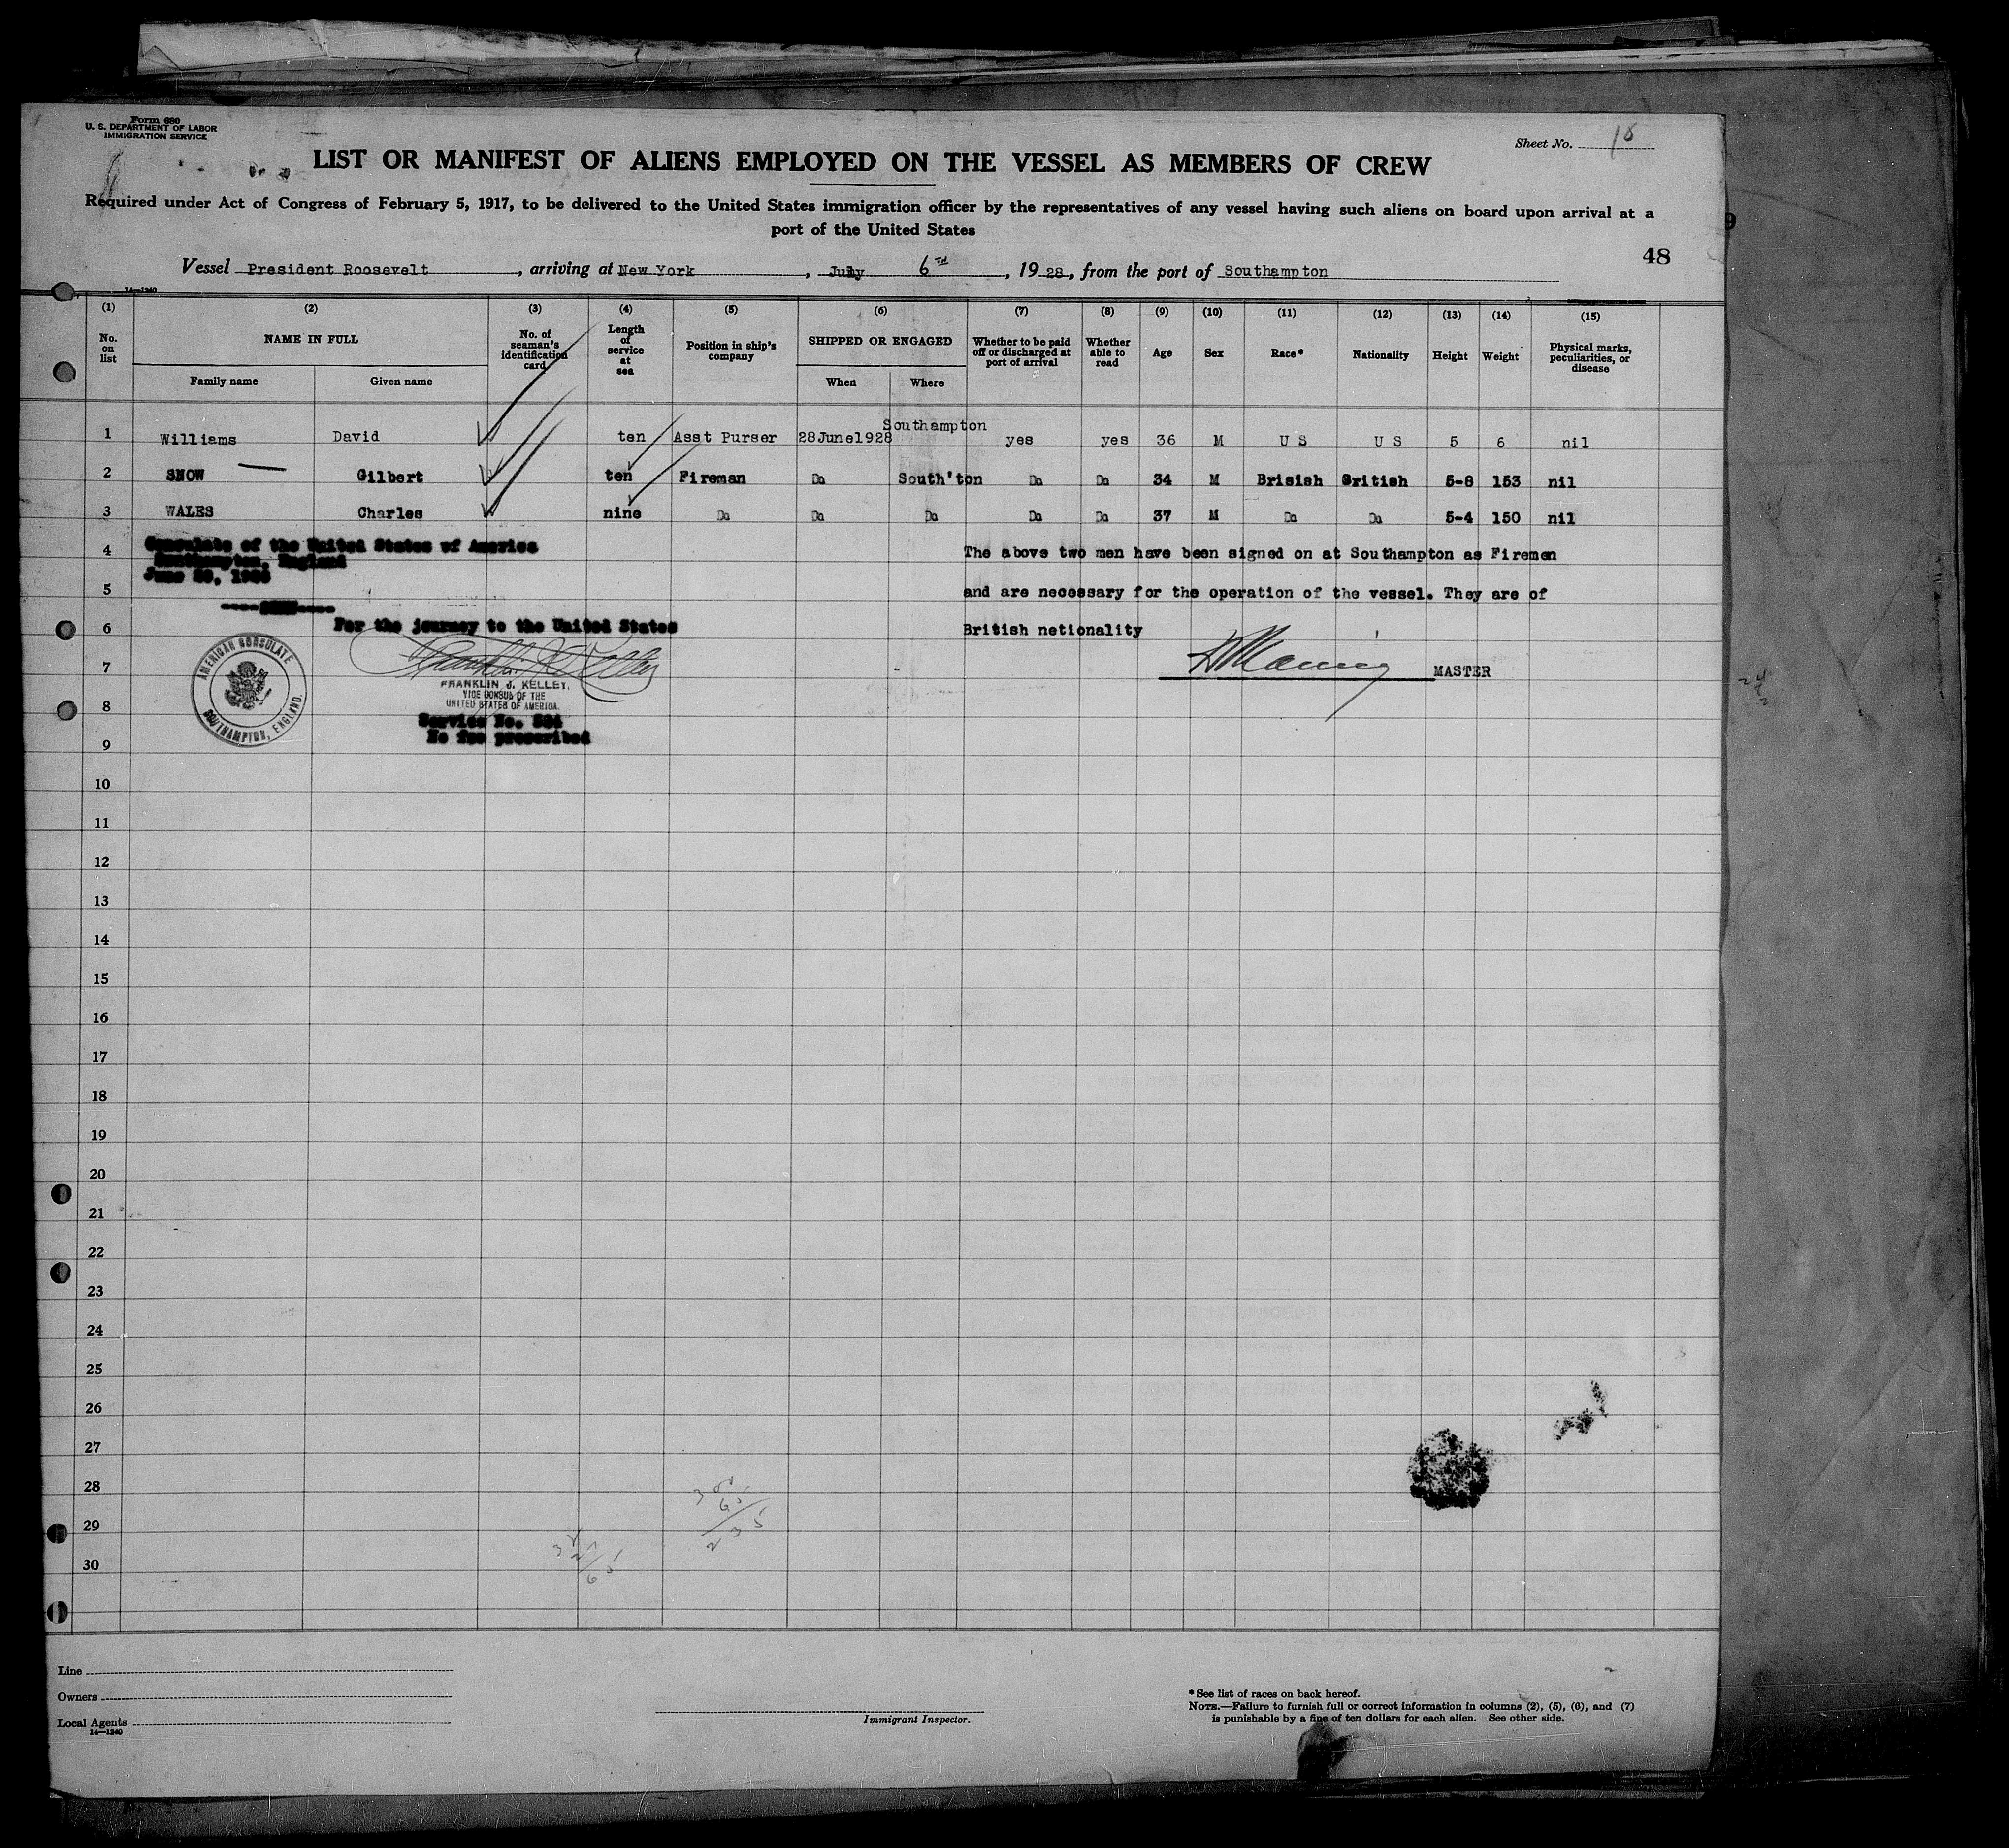 Form 680
U. S. DEPARTMENT OF LABOR
IMMIGRATION SERVICE
Sheet No. 18
LIST OR MANIFEST OF ALIENS EMPLOYED ON THE VESSEL AS MEMBERS OF CREW
Required under Act of Congress of February 5, 1917, to be delivered to the United States immigration officer by the representatives of any vessel having such aliens on board upon arrival at a
port of the United States
48
Vessel President Roosevelt, arriving at New York, July 6th, 1928, from the port of Southampton
14—1240
(1) (2) (3) (4) (5) (6) (7) (8) (9) (10) (11) (12) (13) (14) (15)
No. on list
NAME IN FULL
Family name Given name
No. of seaman's identification card
Length of service at sea
Position in ship's company
SHIPPED OR ENGAGED
When Where
Whether to be paid off or discharged at port of arrival
Whether able to read
Age
Sex
Race*
Nationality
Height
Weight
Physical marks, peculiarities, or disease
1 Williams David ten Asst Purser 28June1928 Southampton yes yes 36 M U S U S 5 6 nil
2 SNOW Gilbert ten Fireman Do South'ton Do Do 34 M Brisish Gritish 5-8 153 nil
3 WALES Charles nine Do Do Do Do Do 37 M Do Do 5-4 150 nil
4 Consulate of the United States of America The above two men have been signed on at Southampton as Firemen
Southampton, England
June
5 and are necessary for the operation of the vessel. They are of
6 For the journey to the United States British netionality
7 MASTER
AMERICAN CONSULATE
SOUTHAMPTON, ENGLAND.
FRANKLIN J. KELLEY,
VICE CONSUL OF THE
UNITED STATES OF AMERICA.
8 Service No.
9 No fee prescribed
10
11
12
13
14
15
16
17
18
19
20
21
22
23
24
25
26
27
28
29
30
65
235
65
Line
Owners
Local Agents
14—1240
Immigrant Inspector.
*See list of races on back hereof.
NOTE.—Failure to furnish full or correct information in columns (2), (5), (6), and (7)
is punishable by a fine of ten dollars for each alien. See other side.